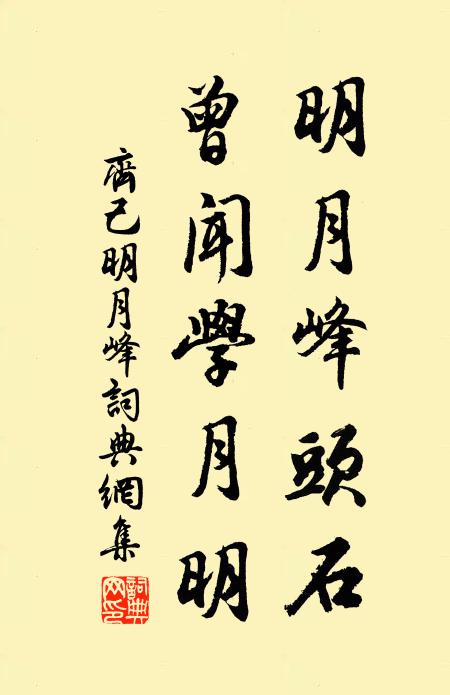 明月峰頭石
曾聞學月明
齊己明月峰詞典網集
詞典網印